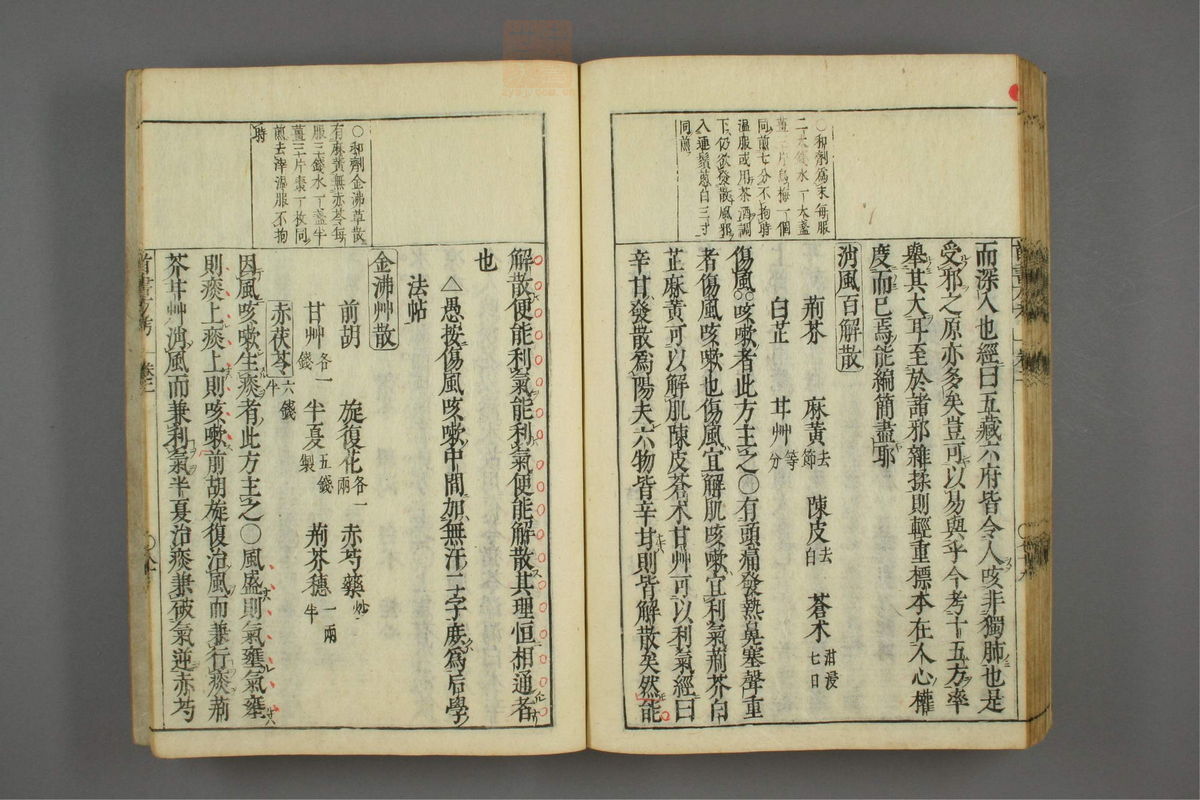 ○和劑爲末每服
二大錢水一大盞
薑三片烏梅一個
同煎七分不拘時
溫服或用茶酒調
下仍欲發散風邪
入連鬚葱白三寸
同煎
而深入也經曰五藏六府皆令人咳非獨肺也是
受邪之原亦多矣豈可以易與乎今考十五方率
舉其大耳至於諸邪雜揉則輕重標本在人心權
度而已焉能編簡盡耶
消風百解散
荊芥 麻黃去節 陳皮去白 蒼朮泔浸七日
白芷 甘艸等分
傷風咳嗽者此方主之○有頭痛發熱鼻塞聲重
者傷風咳嗽也傷風宜解肌咳嗽宜利氣荊芥白
芷麻黃可以解肌陳皮蒼朮甘艸可以利氣經曰
辛甘發散爲陽夫六物皆辛甘則皆解散矣然能
○和劑金沸草散
有麻黃無赤苓每
服三錢水一盞半
薑三片棗一枚同
煎去滓溫服不拘
時
解散便能利氣能利氣便能解散其理恒相通者
也
△愚按傷風咳嗽中間加無汗二字庶爲后學
法帖
金沸艸散
前胡 旋復花各一兩 赤芍藥炒
甘艸各一錢 半夏五錢製 荊芥穗一兩半
赤茯苓六錢半
因風咳嗽生痰者此方主之○風盛則氣壅氣壅
則痰上痰上則咳嗽前胡旋復治風而兼行痰荊
芥甘艸消風而兼利氣半夏治痰兼破氣逆赤芍